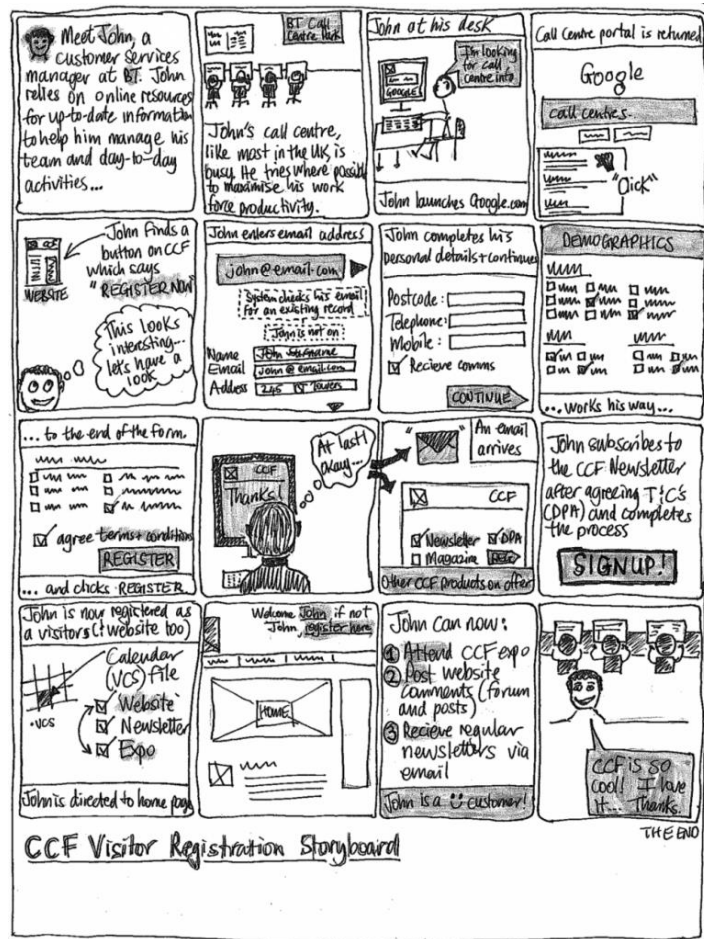 Meet John, a
customer services
manager at BT. John
relies on online resources
for up-to-date information
to help him manage his
team and day-to-day
activities...
BT Call
Centre Park
John's call centre,
like most in the UK, is
busy. He tries where possible
to maximise his work
force productivity.
John at his desk
I'm looking
for call
centre info
GOOGLE
John launches Google.com
Call Centre portal is returned
Google
call centres..
"Click"
John finds a
button on CCF
which says
"REGISTER NOW"
WEBSITE
This looks
interesting...
lets have a
look
John enters email address
john@email.com
System checks his email
for an existing record
John is not on
Name John Surname
Email john@email.com
Address 245 BT Towers
John completes his
personal details + continues
Postcode:
Telephone:
Mobile:
Recieve comms
CONTINUE
DEMOGRAPHICS
... works his way...
... to the end of the form.
agree terms + conditions
REGISTER
... and clicks REGISTER
CCF
Thanks!
At last!
okay...
An email
arrives
CCF
Newsletter DPA
Magazine
Other CCF products on offer
John subscribes to
the CCF Newsletter
after agreeing T&C's
(DPA) and completes
the process
SIGNUP!
John is now registered as
a visitors (& website too)
Calendar
(VCS) file
.VCS
Website
Newsletter
Expo
John is directed to home page
Welcome John if not
John, register here
HOME
John can now:
1 Attend CCF expo
2 Post website
comments (forum
and posts)
3 Recieve regular
newsletters via
email
John is a customer!
CCF is so
cool! I love
it... Thanks.
THE END
CCF Visitor Registration Storyboard